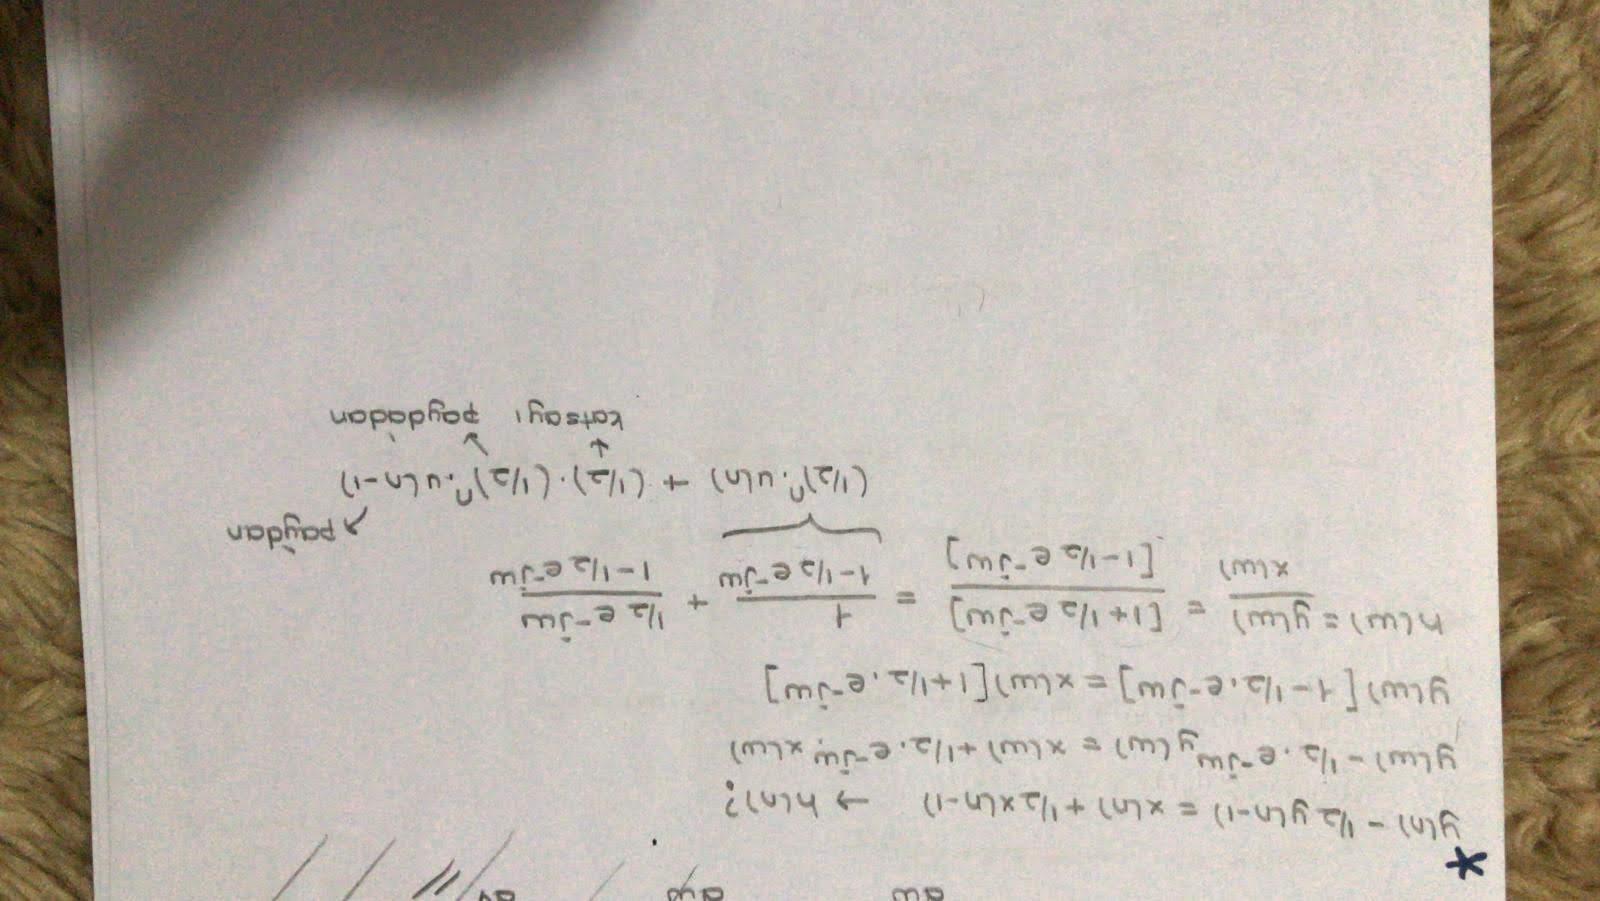 y(n) - 1/2 y(n-1) = x(n) + 1/2 x(n-1) → h(n)?
y(w) - 1/2 . e^-jw y(w) = x(w) + 1/2 . e^-jw . x(w)
y(w) [1 - 1/2 . e^-jw] = x(w) [1 + 1/2 . e^-jw]
h(w) = y(w)/x(w) = [1 + 1/2 e^-jw]/[1 - 1/2 e^-jw] = 1/(1 - 1/2 e^-jw) + 1/2 e^-jw/(1 - 1/2 e^-jw)
paydan
(1/2)^n . u(n) + (1/2) . (1/2)^n . u(n-1)
katsayı paydadan